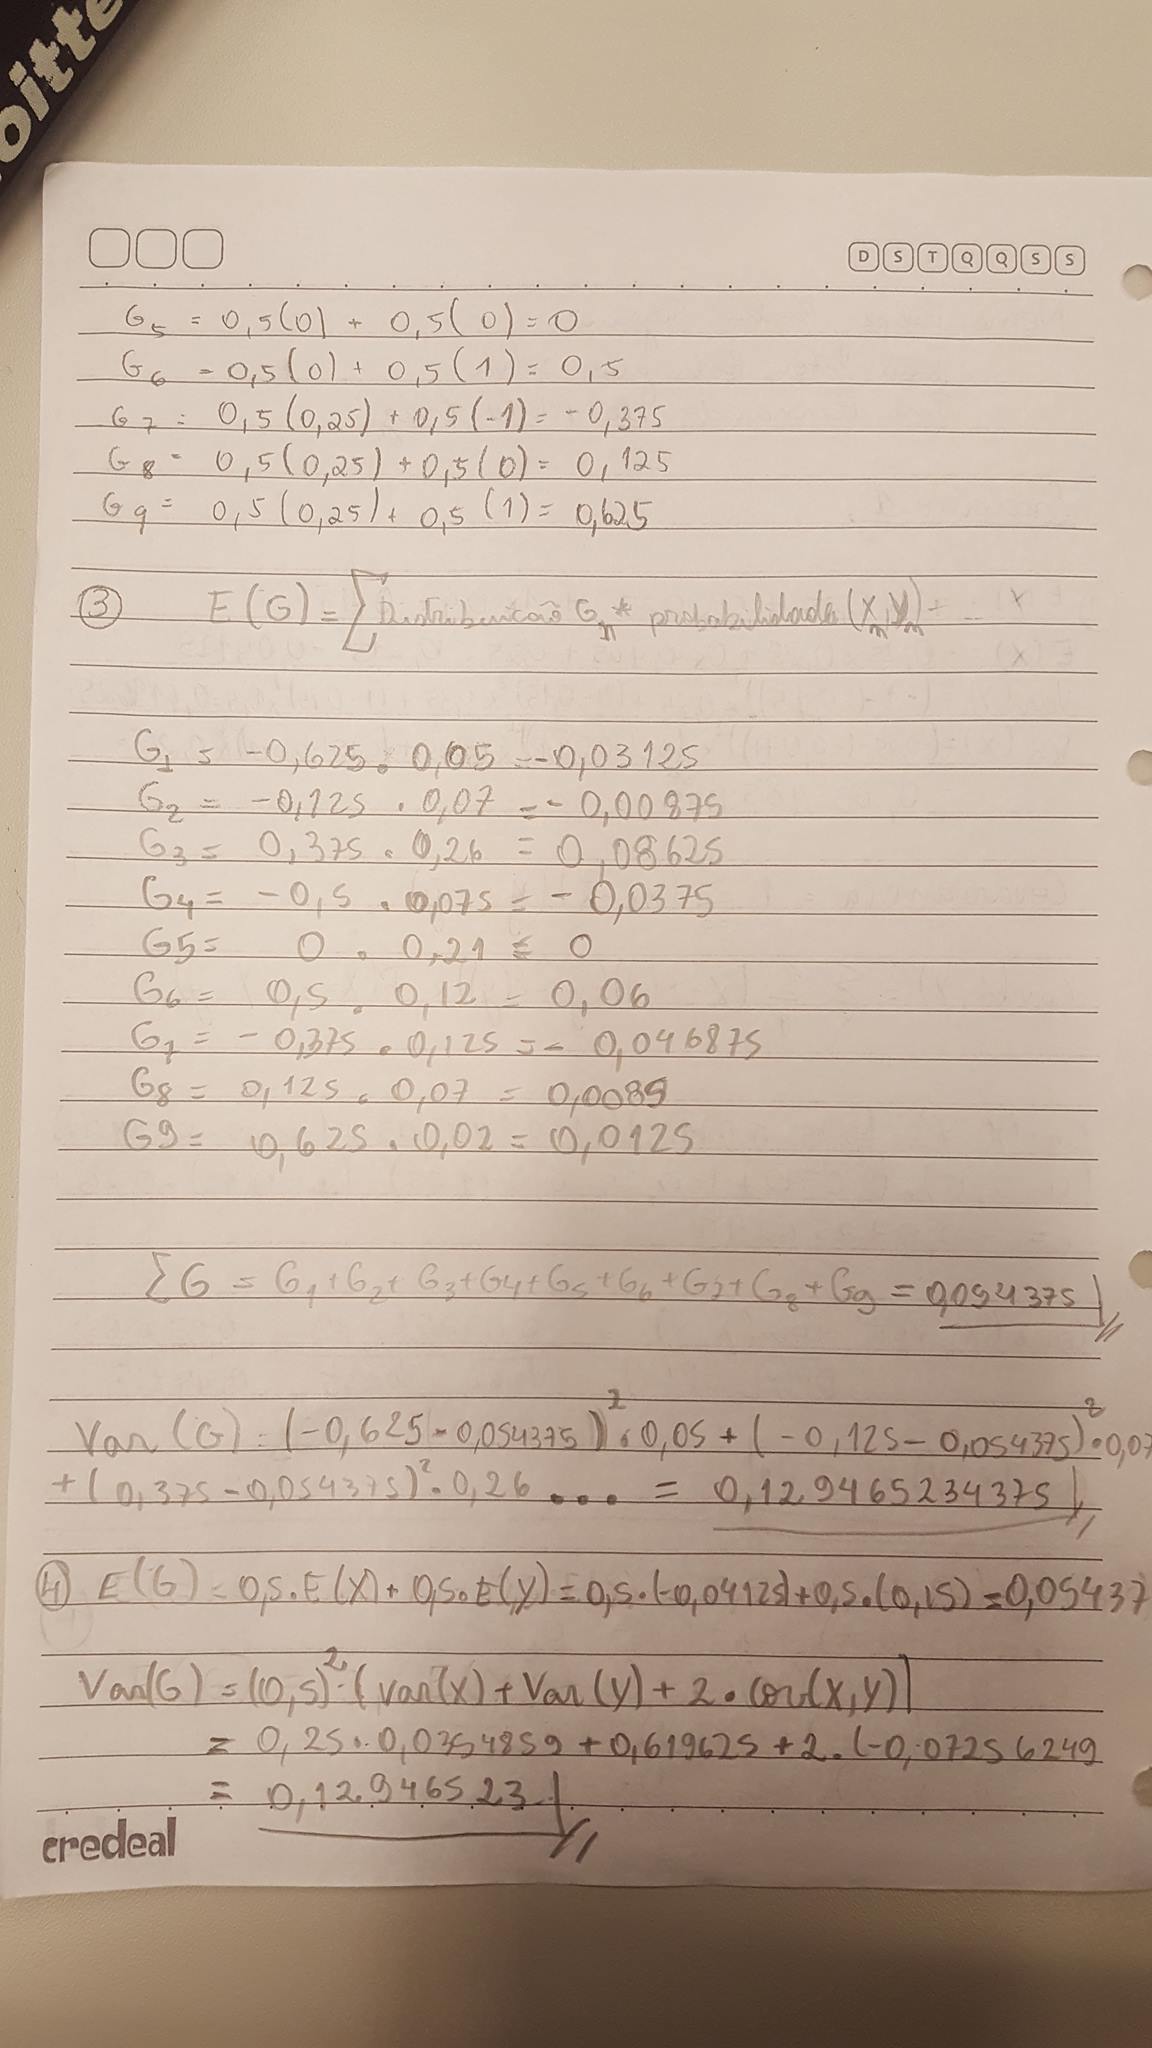 oitte
D S T Q Q S S
G5 = 0,5(0) + 0,5(0) = 0
G6 = 0,5(0) + 0,5(1) = 0,5
G7 = 0,5(0,25) + 0,5(-1) = -0,375
G8 = 0,5(0,25) + 0,5(0) = 0,125
G9 = 0,5(0,25) + 0,5(1) = 0,625
③ E(G) = ∑ Distribuicão Gn * probabilidade (Xn,Yn) = ...
G1 = -0,625 . 0,05 = -0,03125
G2 = -0,125 . 0,07 = -0,00875
G3 = 0,375 . 0,26 = 0,08625
G4 = -0,5 . 0,075 = -0,0375
G5 = 0 . 0,21 = 0
G6 = 0,5 . 0,12 = 0,06
G7 = -0,375 . 0,125 = -0,046875
G8 = 0,125 . 0,07 = 0,0089
G9 = 0,625 . 0,02 = 0,0125
∑G = G1 + G2 + G3 + G4 + G5 + G6 + G7 + G8 + G9 = 0,054375
Var(G) = (-0,625 - 0,054375)² . 0,05 + (-0,125 - 0,054375)² . 0,07
+ (0,375 - 0,054375)² . 0,26 ... = 0,129465234375
④ E(G) = 0,5 . E(X) + 0,5 . E(y) = 0,5 . (-0,04125) + 0,5 . (0,15) = 0,05437
Var(G) = (0,5)² . (var(x) + Var(y) + 2 . cov(x,y)]
= 0,25 . 0,0354859 + 0,619625 + 2 . (-0,07256249
= 0,12946523
credeal